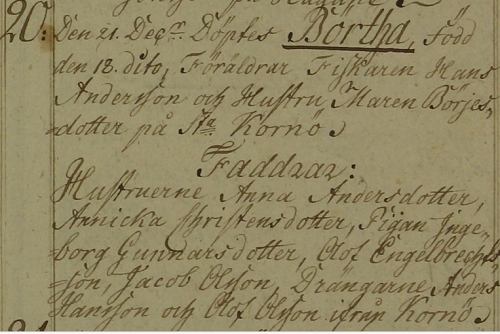 20: Den 21. Decr. Döptes Bortha, Född
den 18. dito, Föräldrar Fiskaren Hans
Andersson och Hustru Maren Börjes-
-dotter på Sta Kornö.
Faddrar:
Hustruerne Anna Andersdotter,
Annicka Christensdotter, Pigan Inge-
-borg Gunnarsdotter, Olof Engelbrechts-
-son, Jacob Olsson, Drängarne Anders
Hansson och Olof Olsson ifrån Kornö.